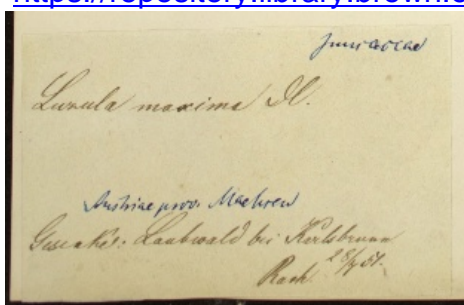 https://repository.library.brown.e
Juncaceae
Luzula maxima Dl.
Austriae prov. Maehren
Gesenke: Laubwald bei Karlsbrunn
28/7 51.